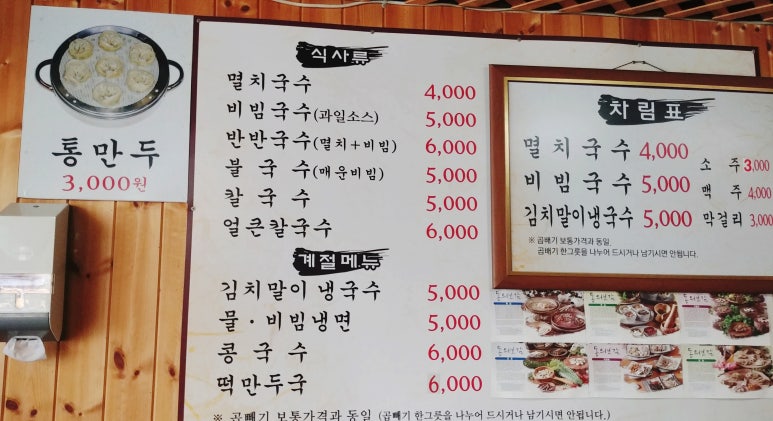 통만두
3,000원
식사류
멸치국수 4,000
비빔국수(과일소스) 5,000
반반국수(멸치+비빔) 6,000
불국수(매운비빔) 5,000
칼국수 5,000
얼큰칼국수 6,000
계절메뉴
김치말이냉국수 5,000
물·비빔냉면 5,000
콩국수 6,000
떡만두국 6,000
※ 곱빼기 보통가격과 동일 (곱빼기 한그릇을 나누어 드시거나 남기시면 안됩니다.)
차림표
멸치국수 4,000
비빔국수 5,000
김치말이냉국수 5,000
소주 3,000
맥주 4,000
막걸리 3,000
※ 곱빼기 보통가격과 동일.
곱빼기 한그릇을 나누어 드시거나 남기시면 안됩니다.